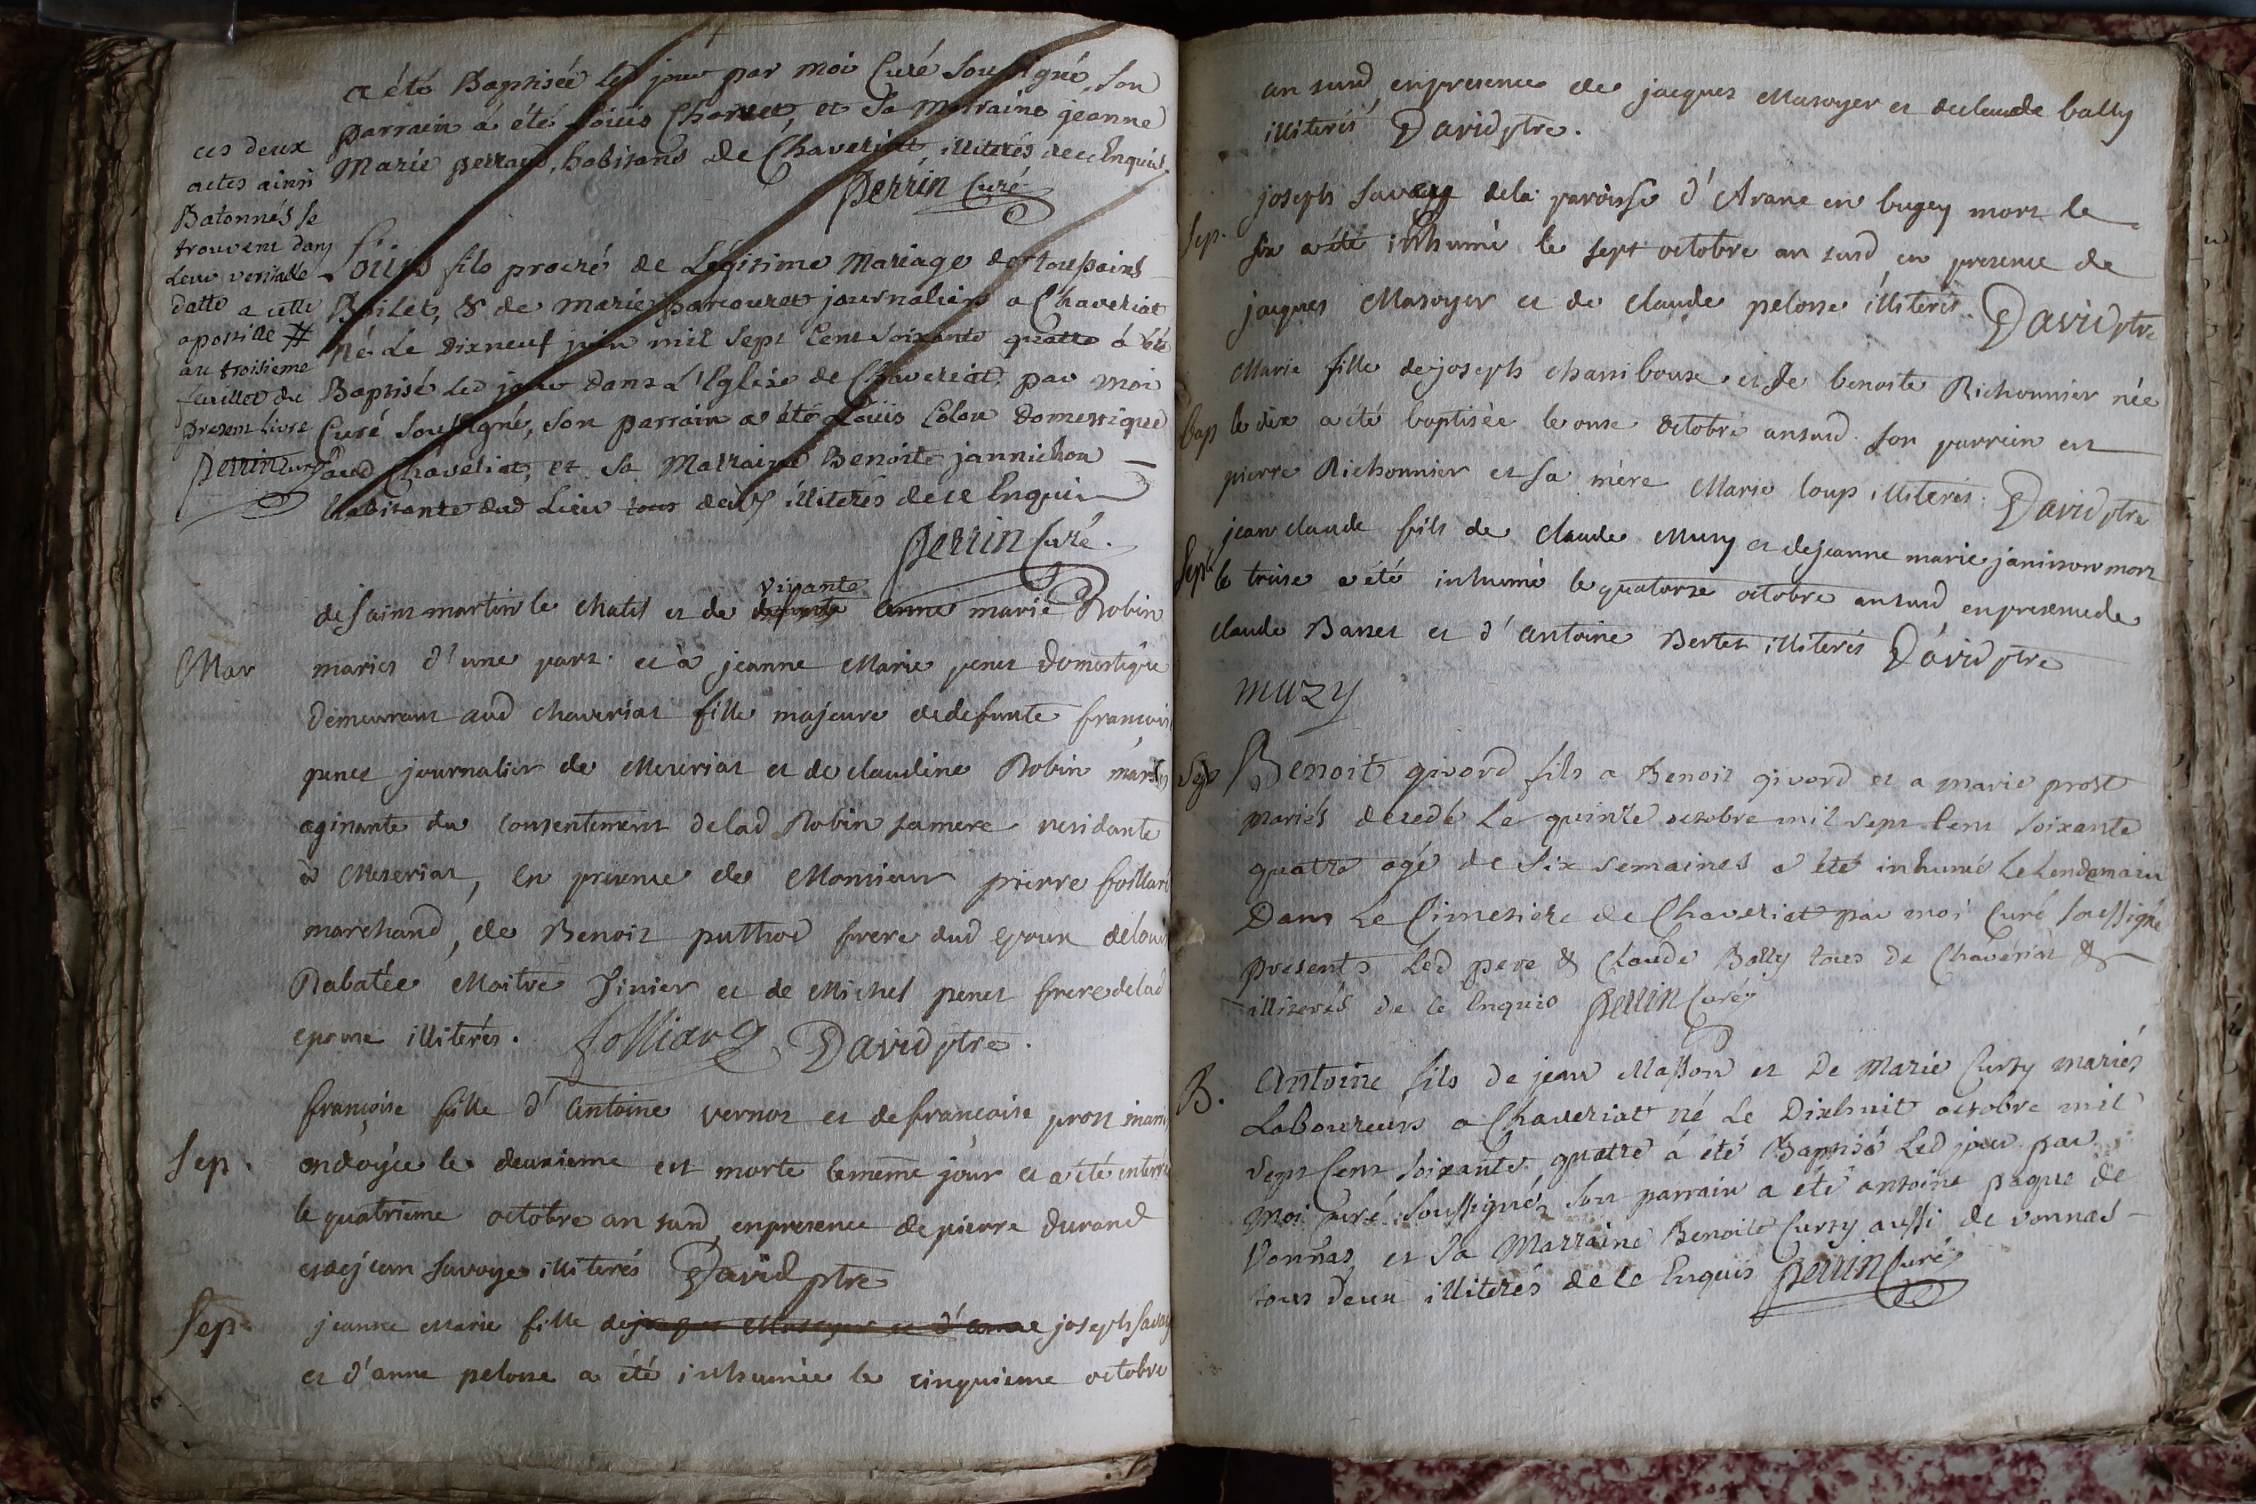 a été Baptisée led jour par moi Curé soussigné, son
parrain a été Loüis Charvet, et sa Marraine jeanne
Marie perraud, habitans de Chaveriat, illiterés de ce Enquis.
perrin Curé
ces deux
actes ainsi
Batonnés se
trouvent dans
leur veritable
datte a cette
apostille #
au troisieme
feuillet du
present livre
perrin curé
Loüis fils procréé de Légitime Mariage de toussaint
Boilet, & de marie parcouret journaliers a Chaveriat
né Le Dixneuf juin mil sept Cent soixante quatre à été
Baptisé led jour dans L'Eglise de Chaveriat, par moi
Curé soussigné, son parrain a été Loüis Colon Domestique
aud Chaveriat, et sa Marraine Benoite jannichon
habitante dud Lieu tous deux illiterés de ce Enquis
perrin Curé.
de saint martin le chatel et de defunte vivante anne marie Robin
Mar
mariés d'une part. et à jeanne Marie penet domestique
demeurant aud chaveriat fille majeure de defunte françois
penet journalier de Meseriat et de claudine Robin mariés
agissante du consentement de lad Robin sa mere residante
à Meseriat, en presence de Monsieur pierre folliard
marchand, de Benoit puthod frere dud epoux de louis
Rabatée Maitre Tixier et de Michel penet frere de lad
epouse illiterés. folliard David ptre.
françoise fille d'Antoine vernos et de françoise prost mariés
Sep.
ondoyée le deuxieme est morte le meme jour et a été enterrée
le quatrieme octobre an susd en presence de pierre durand
et de jean savoye illiterés David ptre
Sep.
jeanne Marie fille de jaques Masoyer et d'anne joseph savoy
et d'anne pelosse a été inhumée le cinquieme octobre
an susd en presence de jacques Masoyer et de claude bally
illiterés David ptre.
joseph savoy de la paroisse d'Arane en bugey mort le
Sep.
six a été inhumé le sept octobre an susd en presence de
jacques Masoyer et de claude pelosse illiterés. David ptre
Marie fille de joseph chaniboux et de benoite Richonnier née
Bap
le dix a été baptisée le onze octobre an susd. son parrein est
pierre Richonnier et sa mère Marie loup illiterés. David ptre
jean claude fils de claude Muzy et de jeanne marie janinson mort
Sept
le treise a été inhumé le quatorze octobre an susd en presence de
claude Basset et d'antoine Bertet illiterés David ptre
muzy
Sep
Benoit givord fils a Benoit givord et a marie prost
mariés decedé Le quinze octobre mil sept Cent soixante
quatre agé de six semaines a été inhumé Le Lendemain
Dans Le Cimetiere de Chaveriat par moi Curé soussigné
presents Led pere & Claude Bally tous de Chaveriat &
illiterés de ce Enquis perrin Curé
B.
Antoine fils de jean Masson et De Marie Curty mariés
Laboureurs a Chaveriat né Le Dixhuit octobre mil
sept Cent soixante quatre à été Baptisé Led jour par
moi curé soussigné, son parrain a été antoine pague de
Vonnas, et sa Marraine Benoite Curty aussi de vonnas
tous deux illiterés de ce Enquis perrin Curé